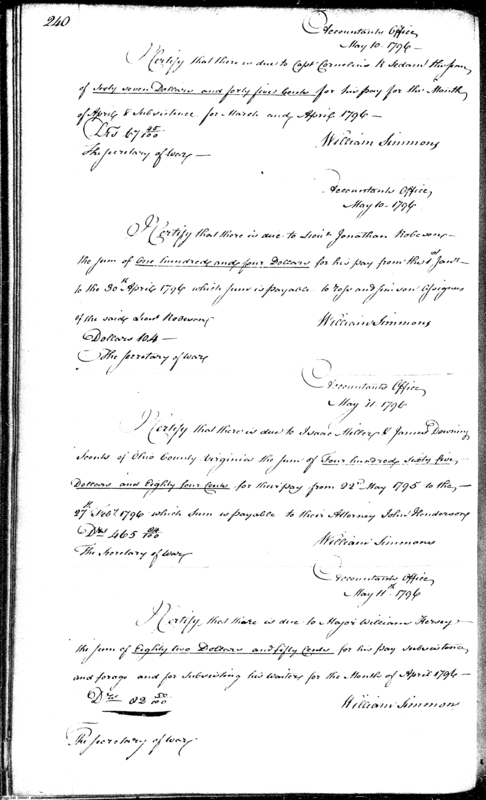 240
Accountants Office
May 10. 1796 —
I Certify that there is due to Capt. Cornelius R Sedam the sum
of Sixty seven Dollars and forty five Cents for his pay for the Month
of April & Subsistence for March and April 1796 —
Drs 67 45/100
William Simmons
The Secretary of War —
Accountants Office,
May 10. 1796
I Certify that there is due to Lieut. Jonathan Robeson —
the sum of One hundred and four Dollars for his pay from the 1st Jany.
to the 30th April 1796 which sum is payable to Ross and Simson Assignees
of the said Lieut Robeson
William Simmons
Dollars 104 —
The Secretary of War
Accountants Office,
May 11. 1796
I Certify that there is due to Isaac Miller & James Downing
Scouts of Ohio County Virginia the sum of Four hundred Sixty five
Dollars and Eighty four Cents for their pay from 22d. May 1795 to the —
27th Feby. 1796 which sum is payable to their Attorney John Henderson
Drs 465 84/100
William Simmons
The Secretary of War
Accountants Office,
May 11th 1796
I Certify, that there is due to Major William Kersey —
the sum of Eighty two Dollars and fifty Cents for his pay subsistence,
and forage and for subsisting his waiters for the Month of April 1796 —
Drs 82 50/100
William Simmons
The Secretary of War